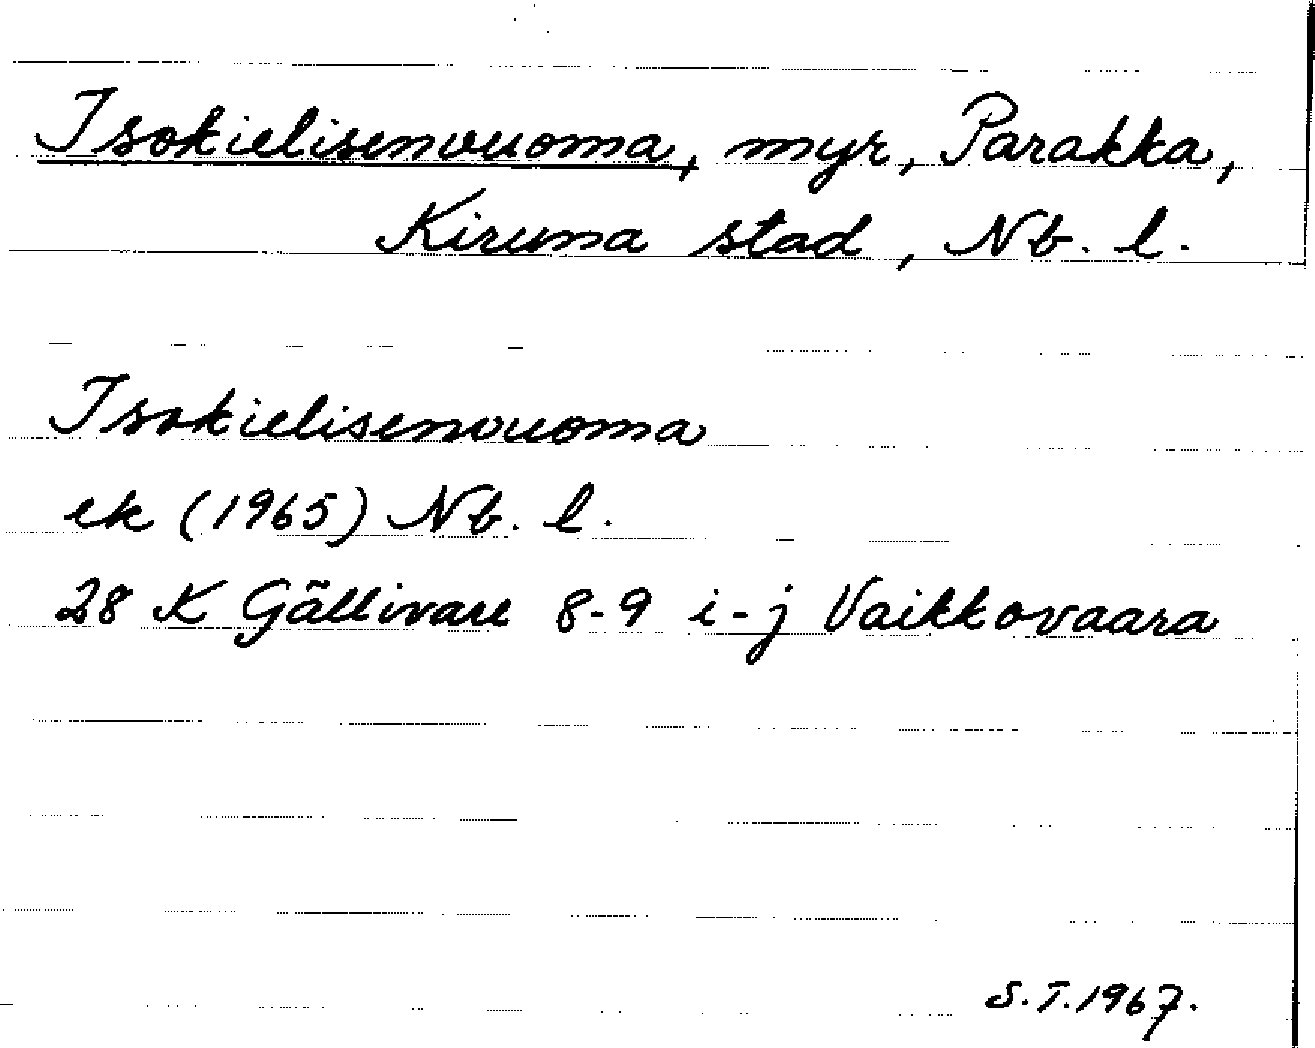 Isokielisenvuoma, myr, Parakka,
Kiruna stad, Nb. l.
Isokielisenvuoma
ek (1965) Nb. l.
28 K Gällivare 8-9 i-j Vaikkovaara
S.T. 1967.